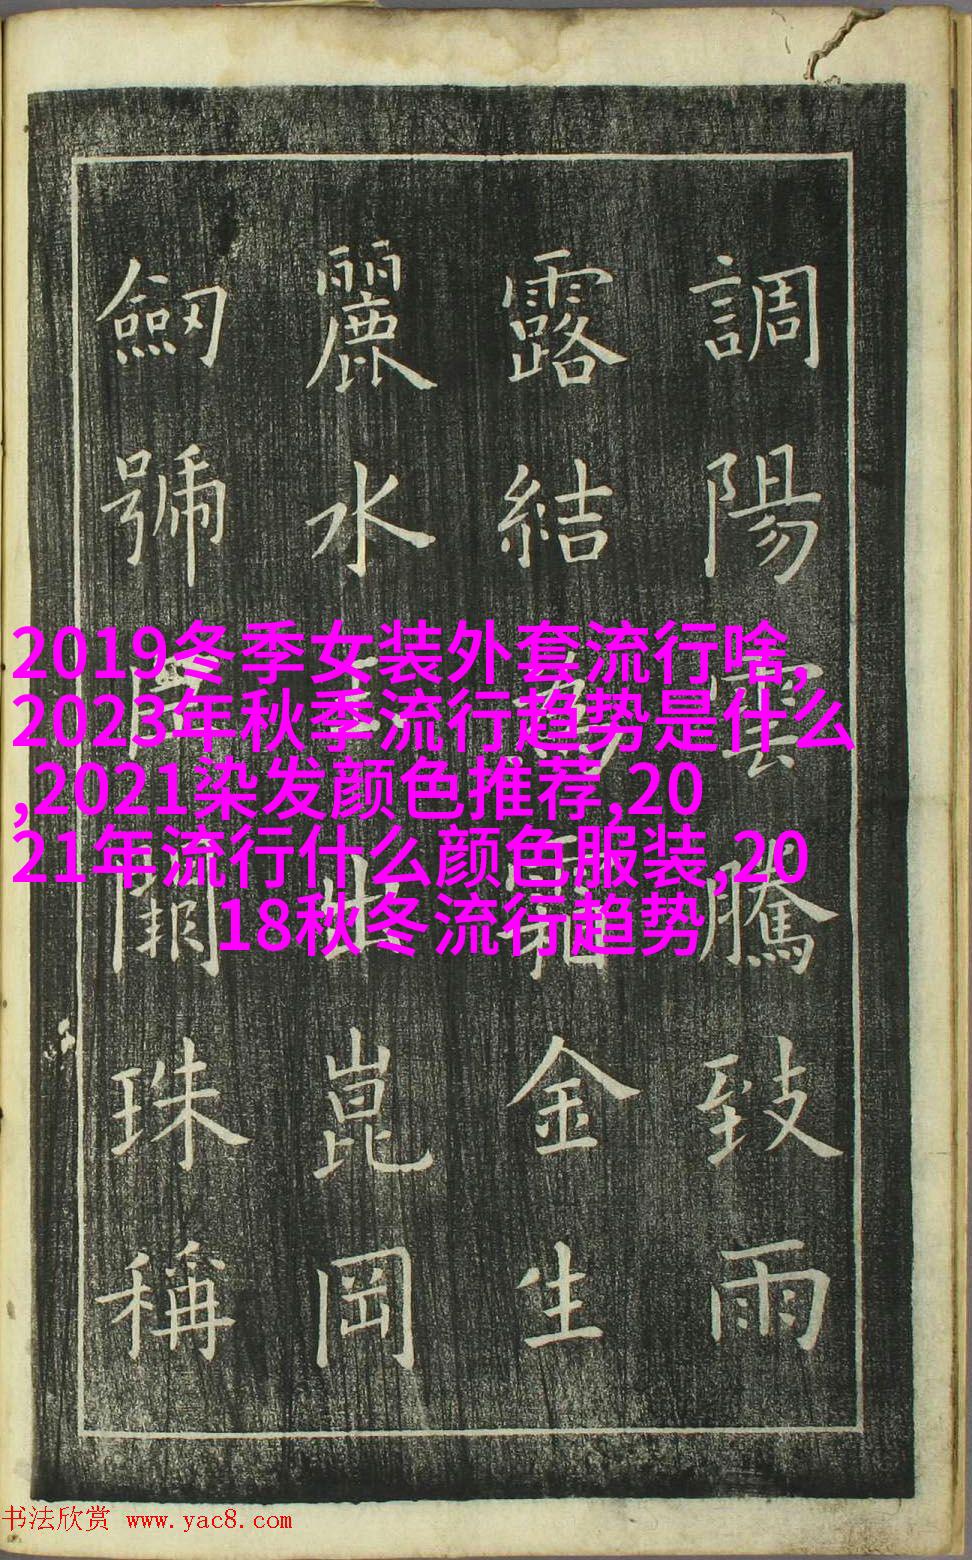 調陽雲騰致雨
露結為霜金生
麗水玉出崑岡
劒號巨闕珠稱
2019冬季女装外套流行啥,
2023年秋季流行趋势是什么
,2021染发颜色推荐,20
21年流行什么颜色服装,20
18秋冬流行趋势
书法欣赏 www.yac8.com